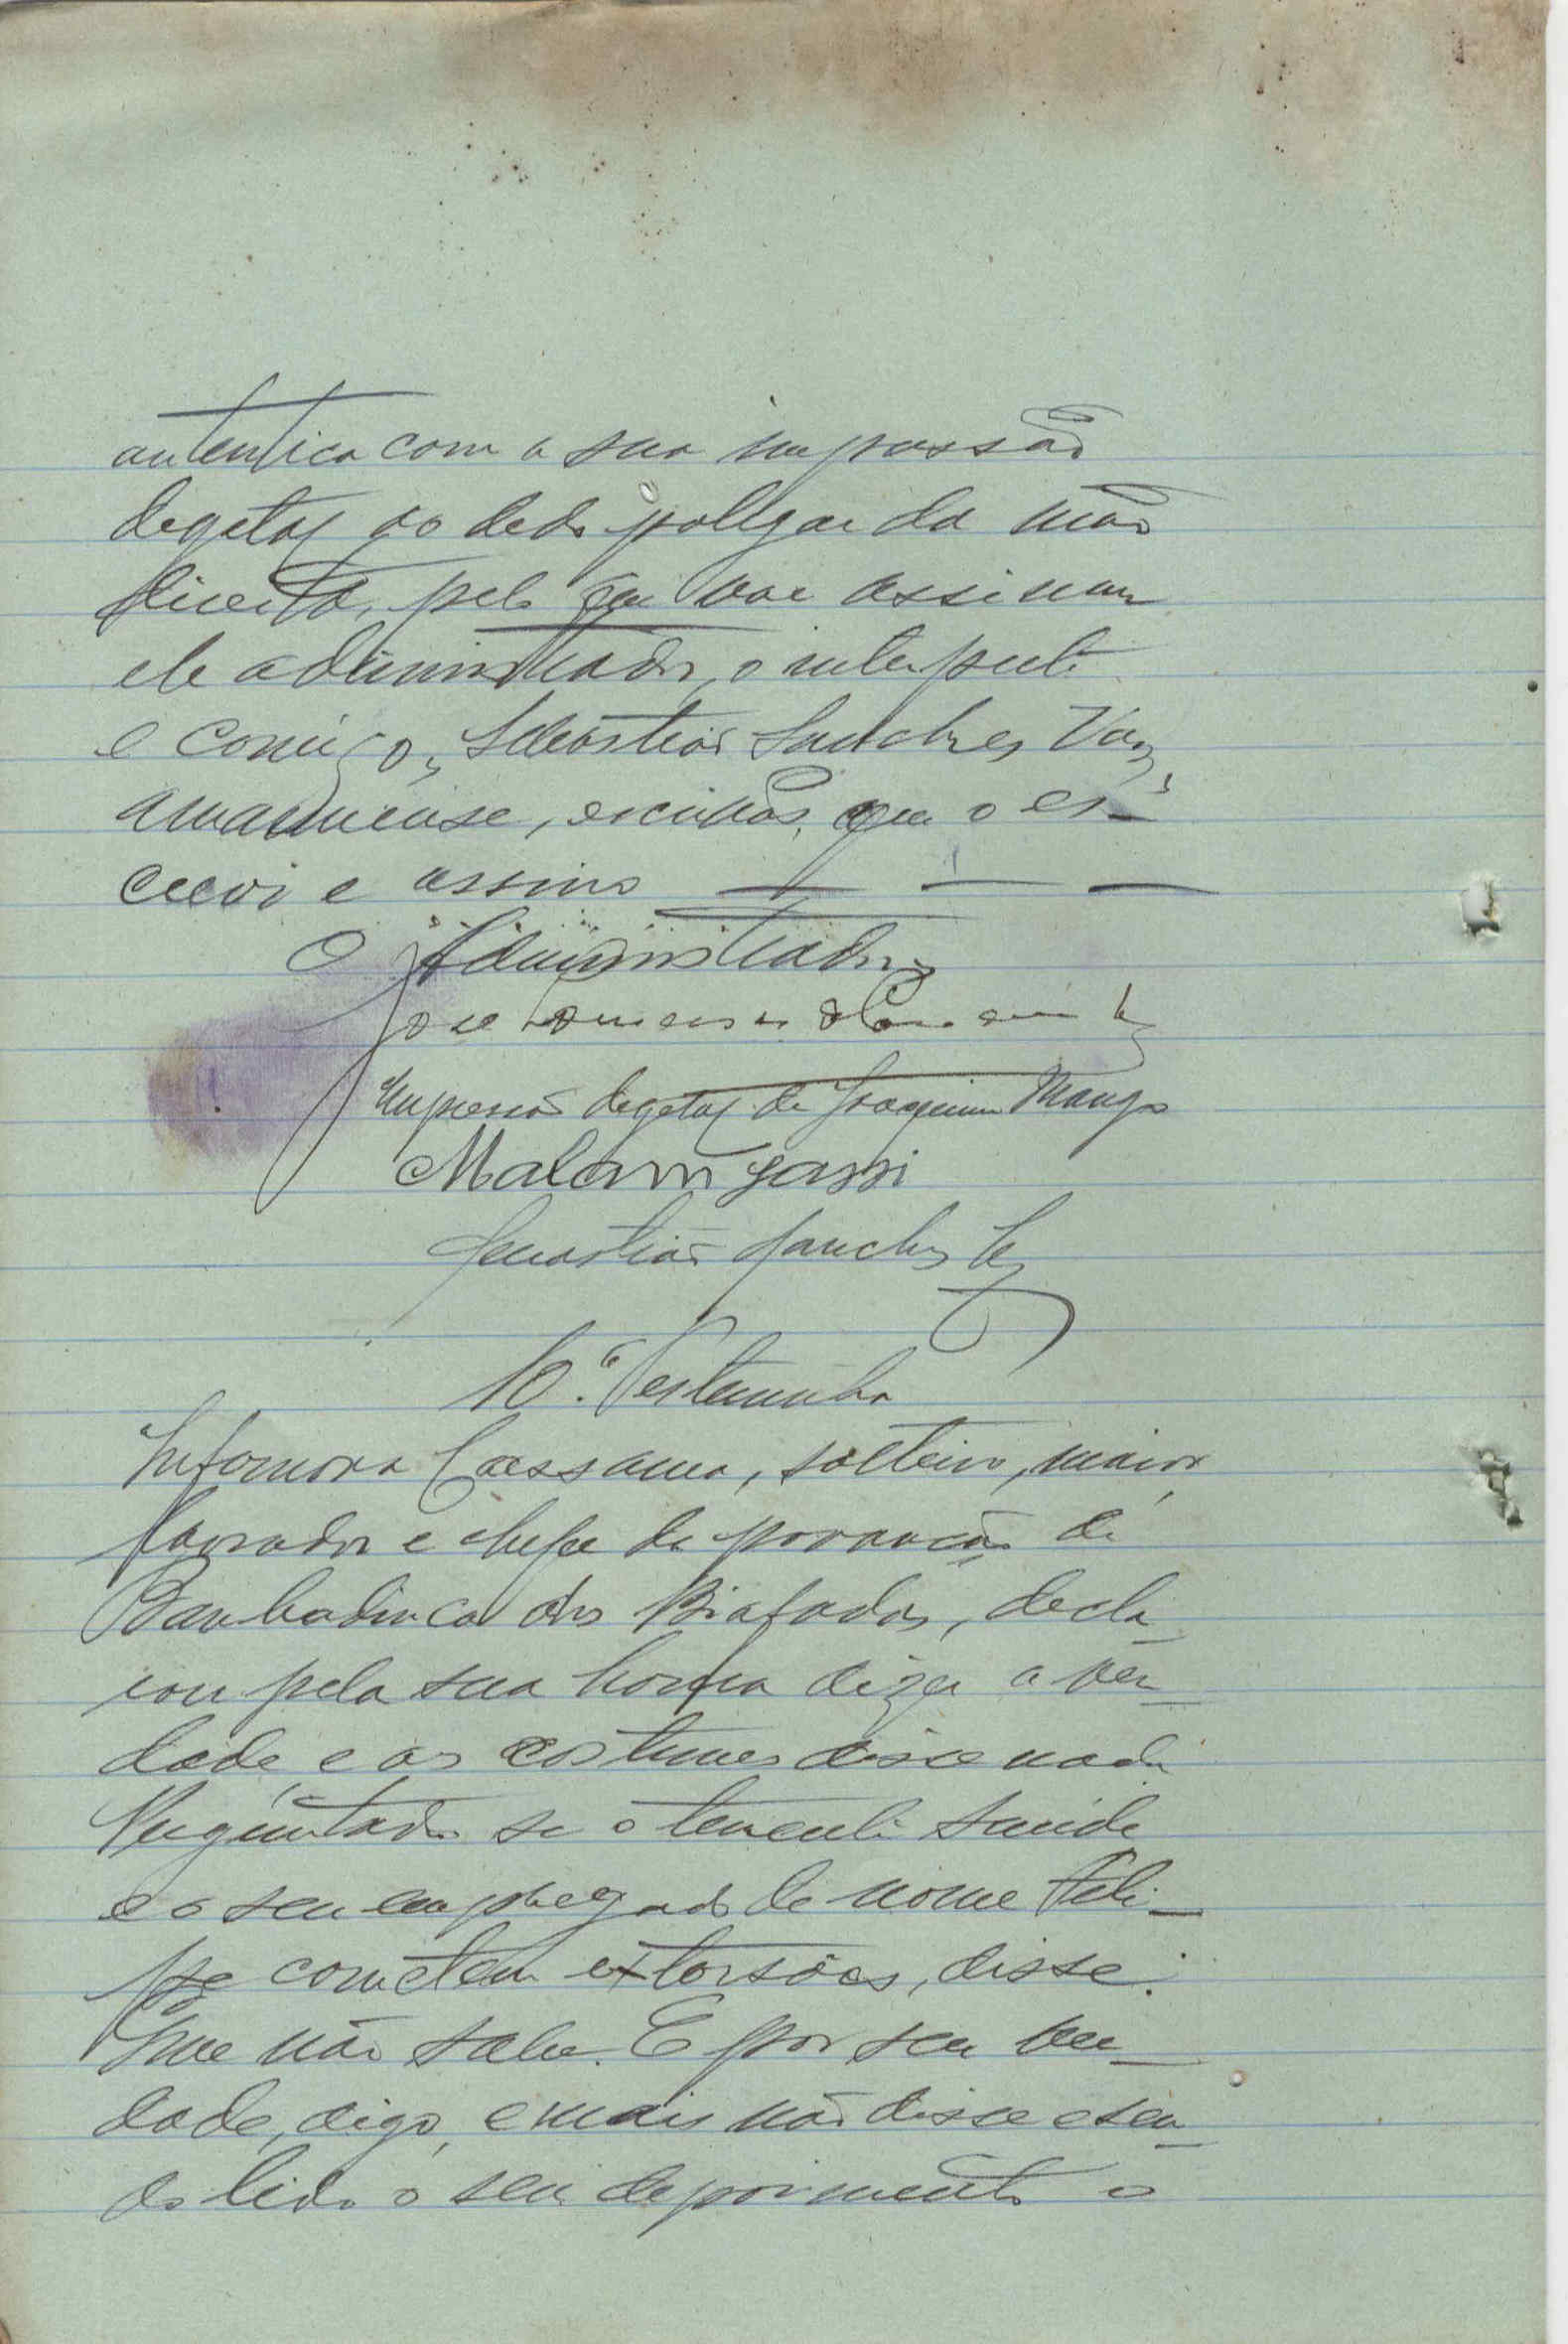 autentica com a sua impressão
degetal do dedo polegar da mão
direita, pelo que vae assinar
ele administrador, o interprete
e comigo, Sebastião Sanches Vaz,
amanuense, escrivão, que o es-
crevi e assino
O Administrador
José
Impressão degetal de Joaquim Manga
Malam Jassi
Sebastião Sanches Vaz
10.ª Testemunha
Cassama, solteiro, maior,
lavrador e chefe da povoação de
Bambadinca dos Biafadas, decla
rou pela sua honra dizer a ver-
dade e aos costumes disse nada
Preguntado se o tenente
e o seu empregado de nome Feli-
pe cometem extorsões, disse:
Que não sabe. E por ser ver-
dade, digo, e mais não disse e sen-
do lido o seu depoimento o